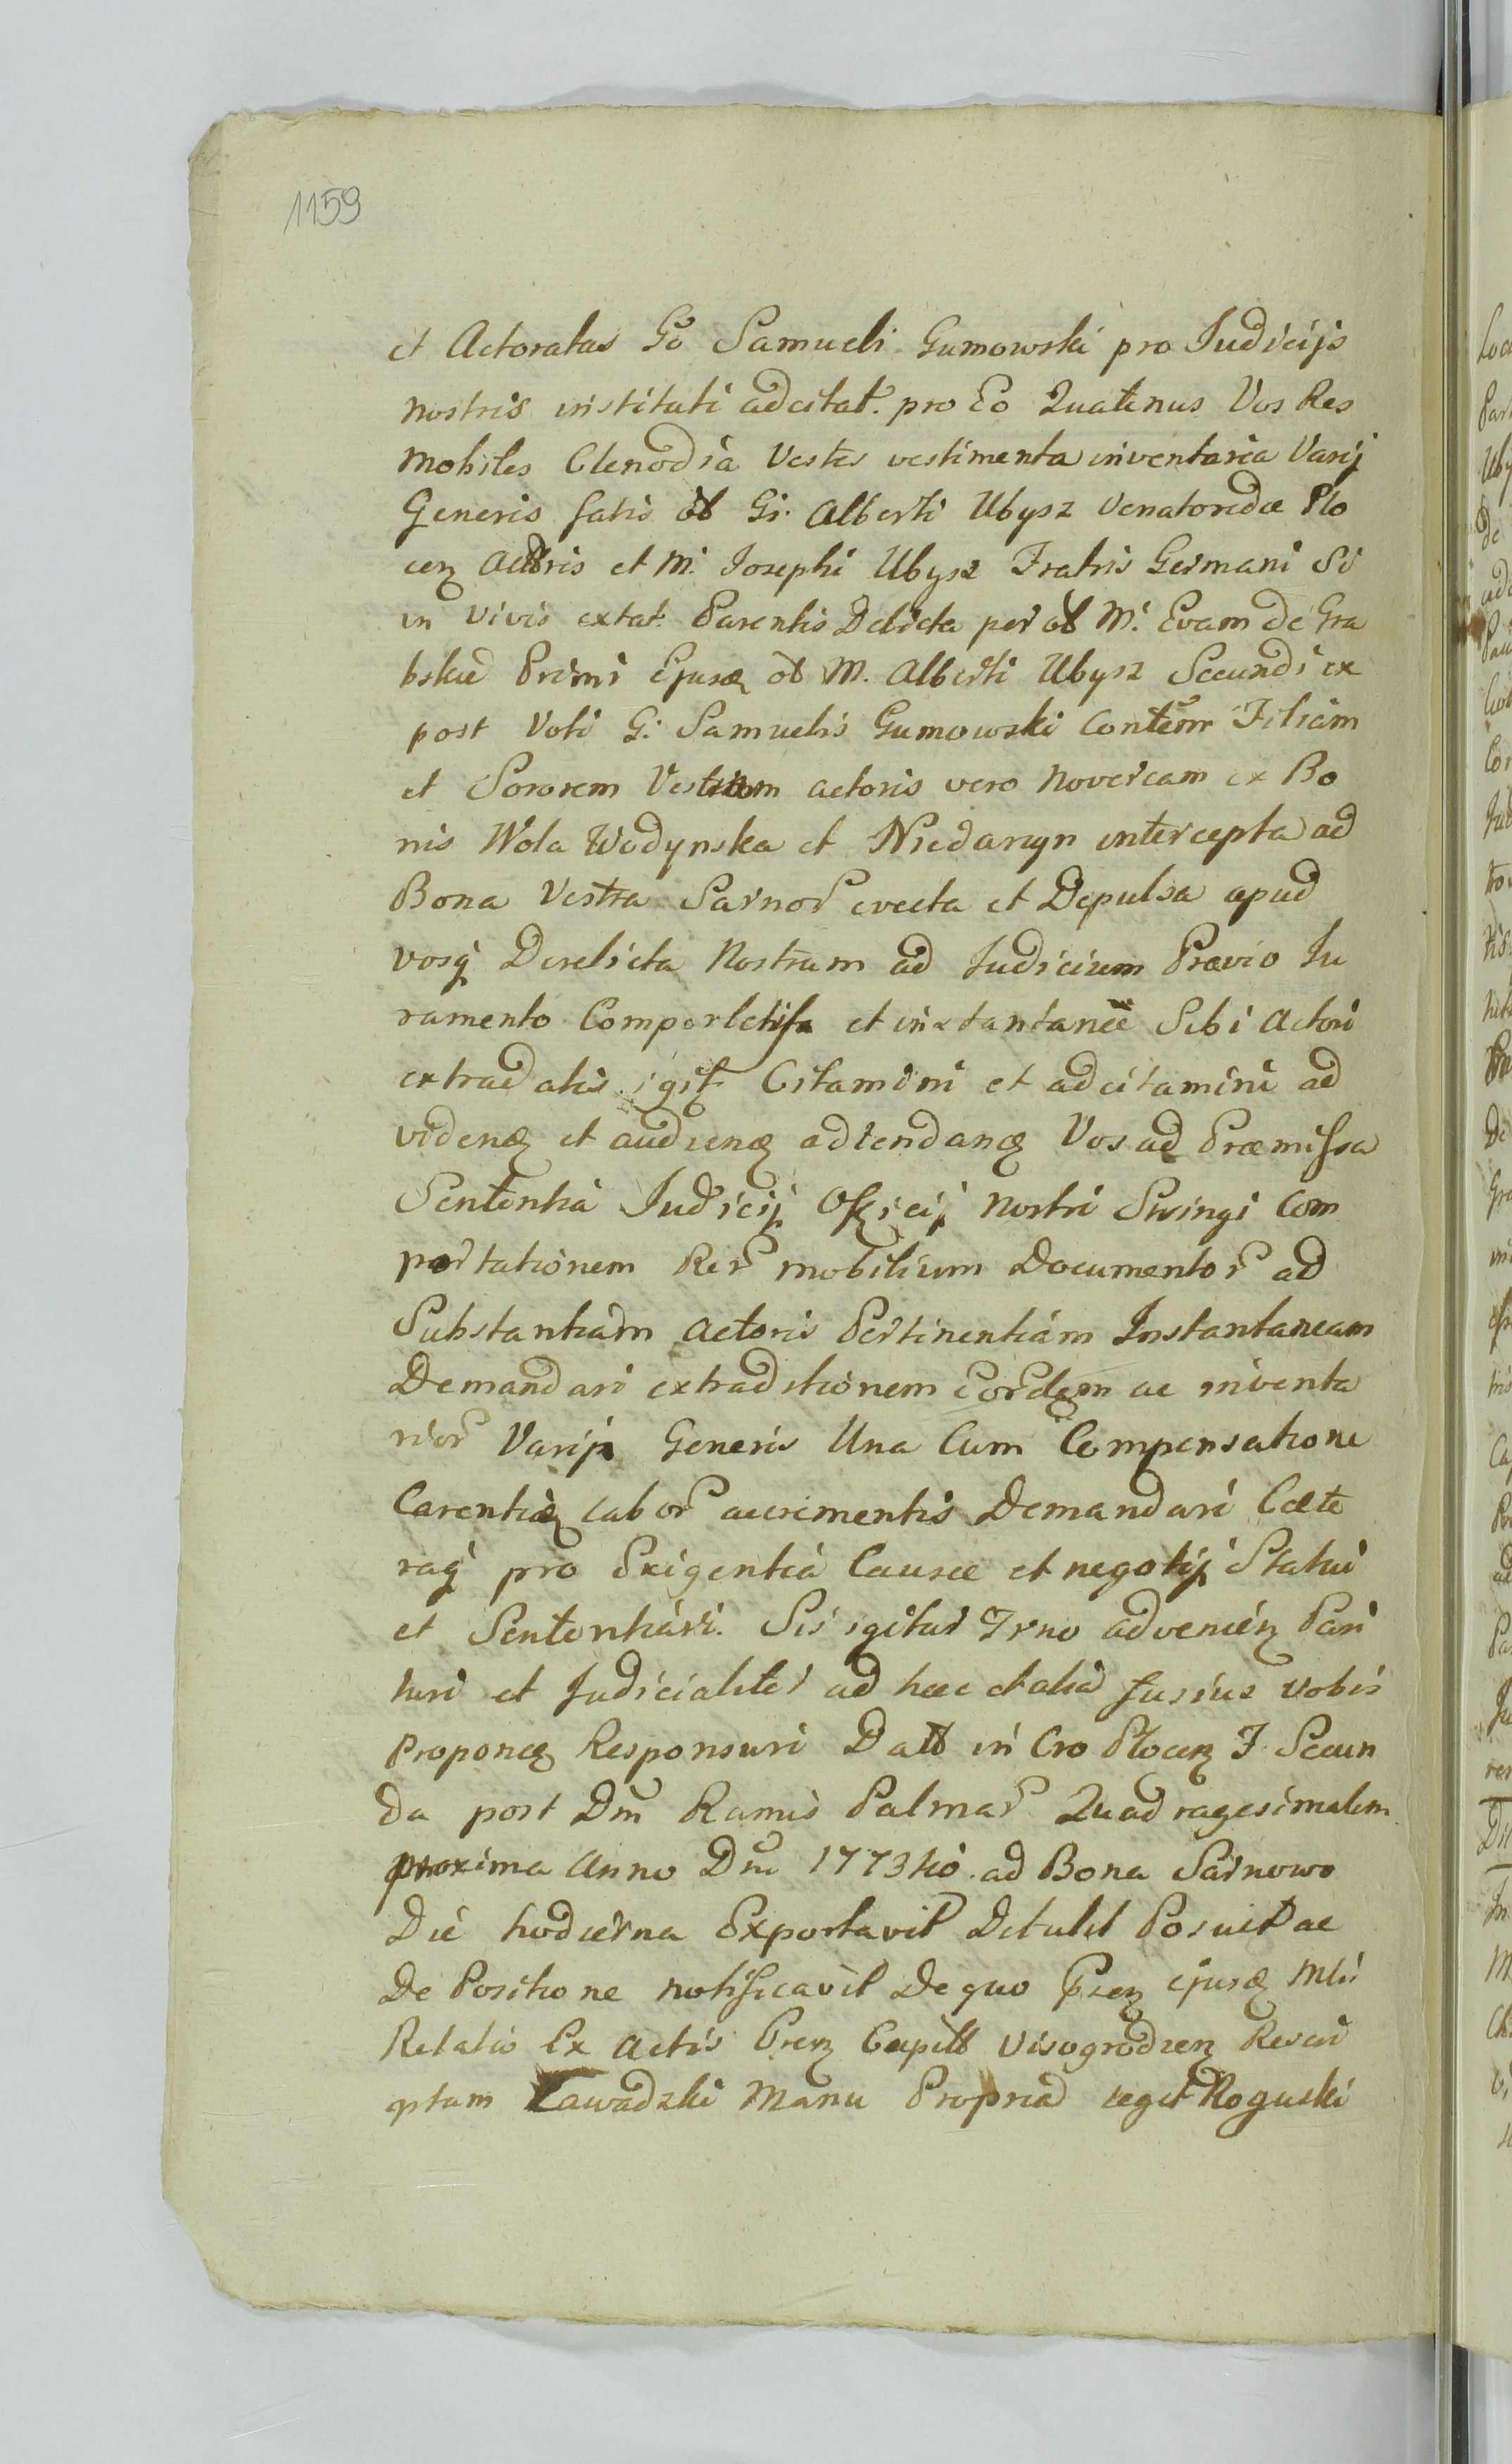 1159
et Actoratus Go Samueli Gumowski pro Judicijs
nostris instituti adcitat. pro Eo Quatenus Vos Res
mobiles Clenodia Vestes vestimenta inventaria Varij
Generis fatis ol Gi. Alberti Ubysz Venatoridae Plo
cen Actoris et M. Josephi Ubysz Fratris Germani Si
in vivis extat. Parentis Delicta per ol M. Evam de Gra
bskie Primi Ejusq ol M. Alberti Ubysz Secundi ex
post Voti G. Samuelis Gumowski Contēm Filiam
et Sororem Vestram actoris vero Novercam ex Bo
nis Wola Wodynska et Niedarzyn intercepta ad
Bona Vestra Sarnoƈ evecta et Depulsa apud
vosq Derelicta Nostrum ad Judicium Prævio Ju
ramento Comportetis et instantanee Sibi Actori
extradatis igit Citamini et adcitamini ad
videnq et audienq adtendanq Vos ad Præmissa
Sententia Judicij Officij nostri Stringi Com
portationem Rer mobilium Documentor ad
Substantiam actoris Pertinentiam Instantaneam
Demandari extraditionem eordem ac inventa
rior Varij Generis Una Cum Compensatione
Carentiæ labor accrementis Demandari Cæte
raq pro Exigentia Causæ et negotij Statui
et Sententiari. Sis igitur Trno advenien Pari
turi et Judicialiter ad hæc et alia fusius vobis
Proponq Responsuri Datt in Cro Plocen F. Secun
da post Dm Ramis Palmar Quadragesimalem
proxima Anno Dni 1773tio ad Bona Sarnowo
Die hodierna Exportavit Detulit Posuit ac
De Positione notificavit De quo Prēn ejusq Mlii
Relatio Ex Actis Pren Capitt Visogrodien Rescri
ptam Zawadzki Manu Propria legit Roguski